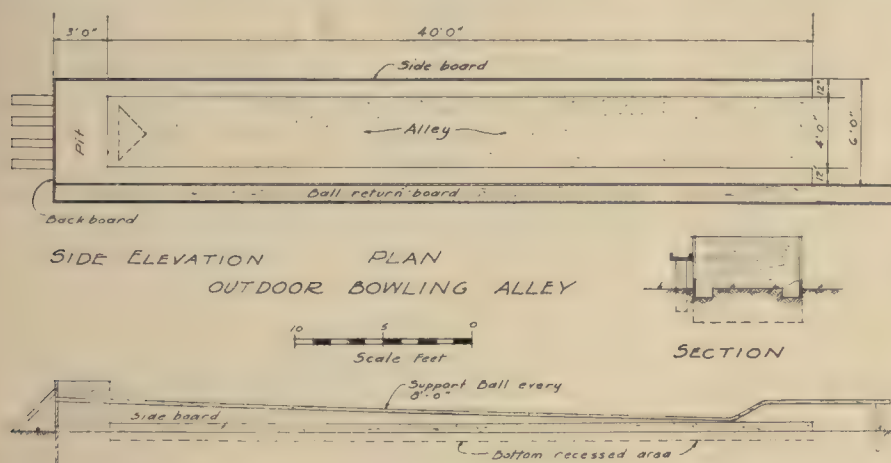 3'0"
40'0"
Side board
Pit
Alley
12"
4'0"
6'0"
12"
Ball return board
Backboard
SIDE ELEVATION
PLAN
OUTDOOR BOWLING ALLEY
10 5 0
Scale Feet
SECTION
Support Ball every
8'-0"
Side board
Bottom recessed area